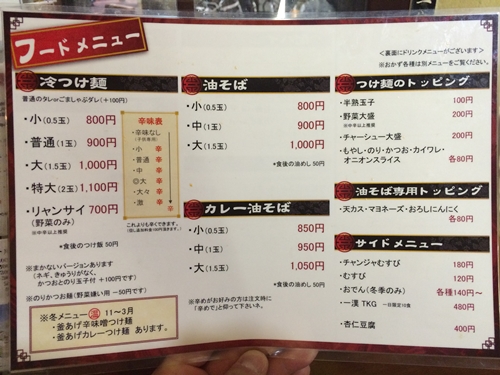 フードメニュー
＜裏面にドリンクメニューがございます＞
※おかず各種は別メニューをご覧ください。
冷つけ麺
普通のタレorごましゃぶダレ（＋100円）
・小（0.5玉） 800円
・普通（1玉） 900円
・大（1.5玉） 1,000円
・特大（2玉） 1,100円
・リャンサイ 700円
（野菜のみ）
※中辛以上推奨
・食後のつけ飯 50円
辛味表
・辛味なし
・小 辛
・普通 辛
・中 辛
・◎大 辛
・大々 辛
・激 辛
これよりも辛くできます。
※まかないバージョンあります
（ネギ、きゅうりがなく、
かつおとのり玉子付 ＋100円です）
※のりかつお麺（野菜嫌い用 －50円です）
※冬メニュー 温 11～3月
・釜あげ辛味噌つけ麺
・釜あげカレーつけ麺 あります。
油そば
・小（0.5玉） 800円
・中（1玉） 900円
・大（1.5玉） 1,000円
・食後の油めし 50円
カレー油そば
・小（0.5玉） 850円
・中（1玉） 950円
・大（1.5玉） 1,050円
・食後の油めし 50円
※辛めがお好みの方は注文時に
「辛めで」と仰って下さいネ。
つけ麺のトッピング
・半熟玉子 100円
・野菜大盛 200円
※中辛以上推奨
・チャーシュー大盛 200円
・もやし・のり・かつお・カイワレ・
オニオンスライス 各80円
油そば専用トッピング
・天カス・マヨネーズ・おろしにんにく
各80円
サイドメニュー
・チャンジャむすび 180円
・むすび 120円
・おでん（冬季のみ） 各種140円～
・一漢 TKG 一日限定10食 480円
・杏仁豆腐 400円